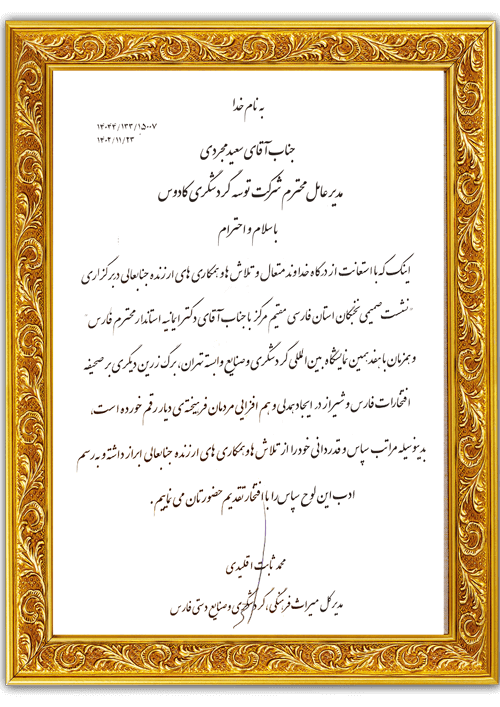 به نام خدا
۱۴۰۴۴/۱۳۳/۱۵۰۰۷
۱۴۰۲/۱۱/۲۳
جناب آقای سعید مجردی
مدیرعامل محترم شرکت توسعه گردشگری کادوس
باسلام و احترام
اینک که با استعانت از درگاه خداوند متعال و تلاش ها و همکاری های ارزنده جنابعالی در برگزاری
"نشست صمیمی نخبگان استان فارسی مقیم مرکز با جناب آقای دکتر ایمانیه استاندار محترم فارس"
و همزمان با هفدهمین نمایشگاه بین المللی گردشگری و صنایع وابسته تهران، برگ زرین دیگری بر صحیفه
افتخارات فارس و شیراز در ایجاد همدلی و هم افزایی مردمان فریخته ی دیار رقم خورده است،
بدینوسیله مراتب سپاس و قدردانی خود را از تلاش ها و همکاری های ارزنده جنابعالی ابراز داشته و به رسم
ادب این لوح سپاس را با افتخار تقدیم حضورتان می نماییم.
محمد ثابت اقلیدی
مدیرکل میراث فرهنگی، گردشگری و صنایع دستی فارس